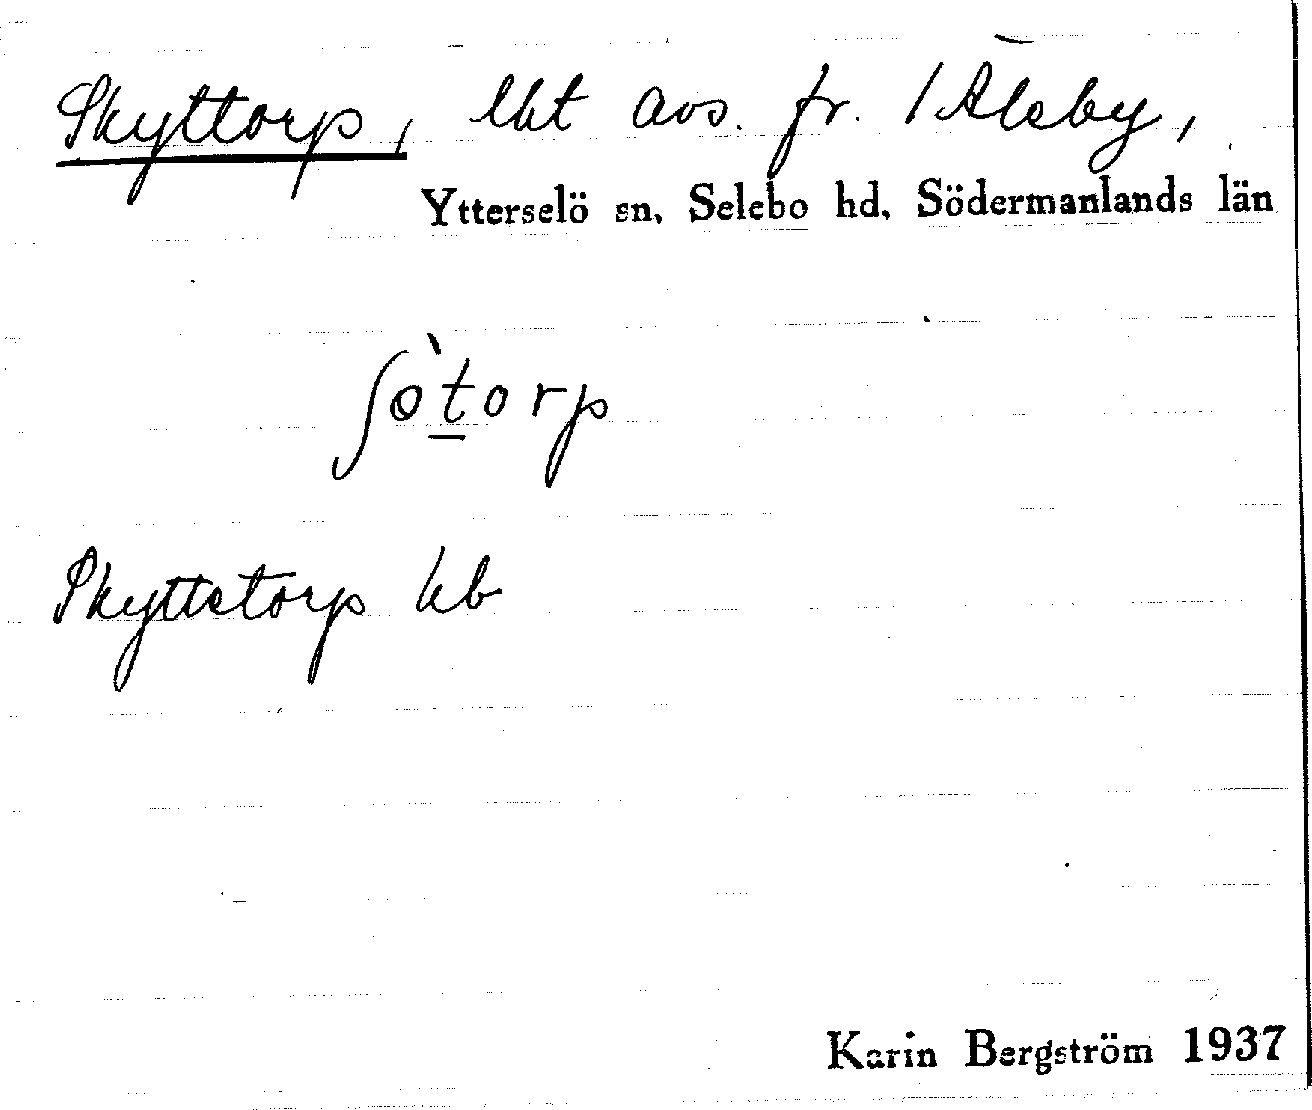 Skyttorp, lht avs. fr. 1 Åleby,
Ytterselö sn, Selebo hd, Södermanlands län
ʃòtorp
Skyttetorp kb
Karin Bergström 1937